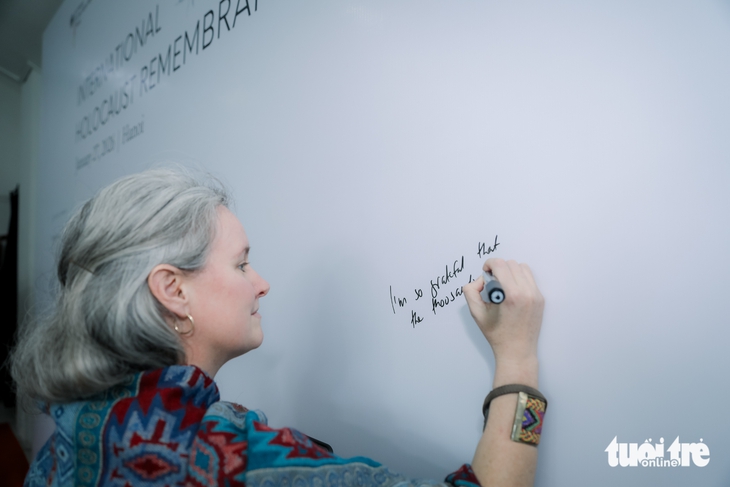 INTERNATIONAL
HOLOCAUST REMEMBRAN
January 27, 2026 | Hanoi
I'm so grateful that
the thousand
tuổi trẻ
online